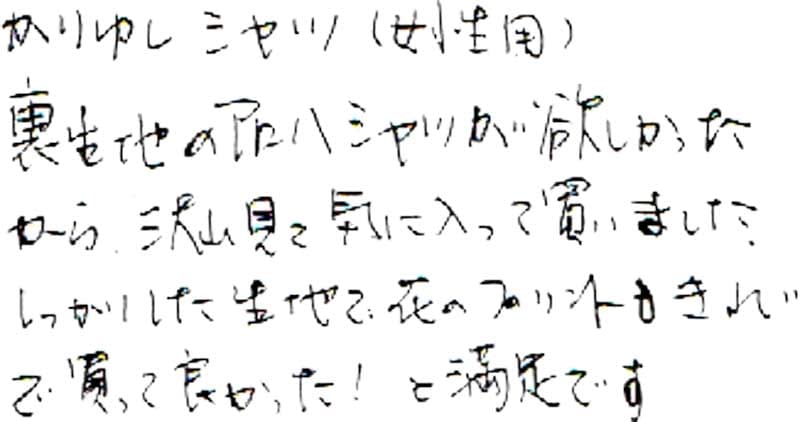 かりゆしシャツ(女性用)
裏生地のアロハシャツが欲しかった
から、沢山見て気に入って買いました。
しっかりした生地で花のプリントもきれい
で買って良かった！と満足です